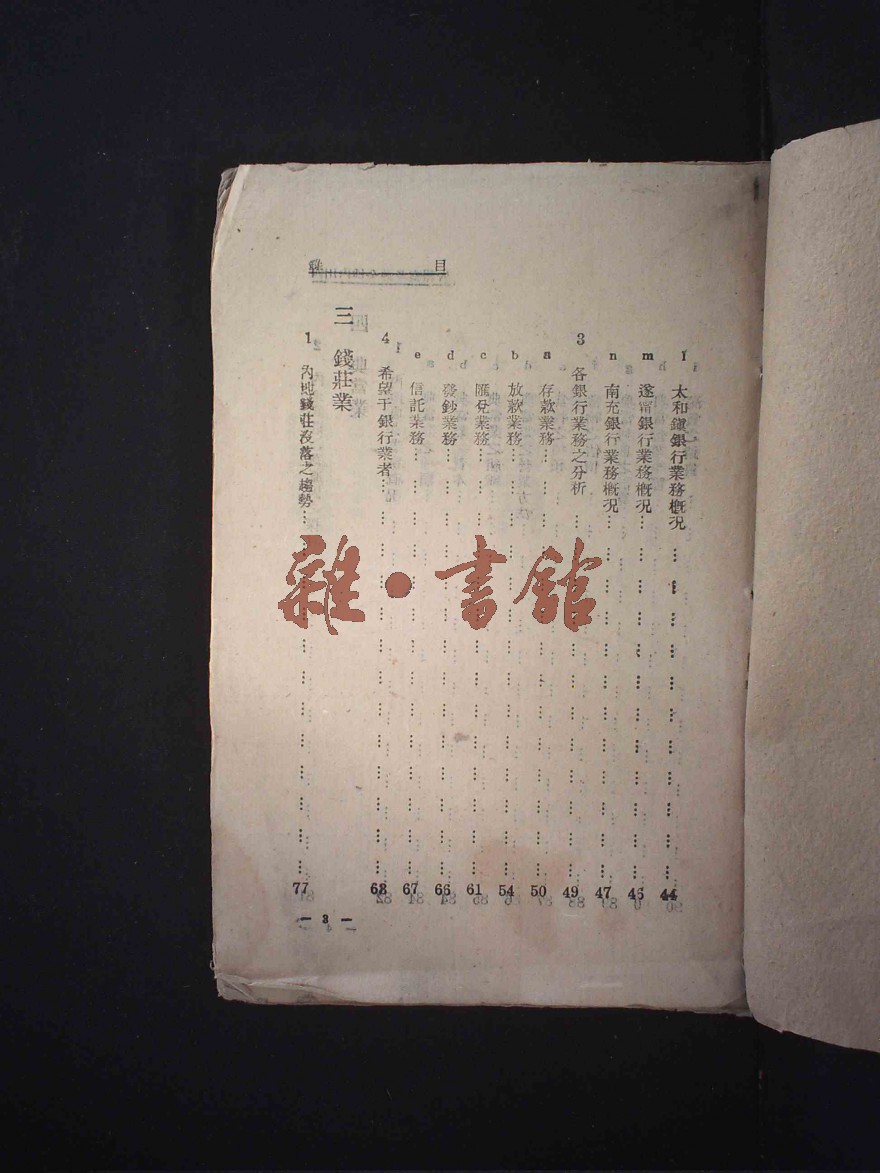 目錄
l 太和鎮銀行業務概況………………44
m 遂甯銀行業務概況………………46
n 南充銀行業務概況………………47
3 各銀行業務之分析………………49
a 存款業務………………50
b 放款業務………………54
c 匯兌業務………………61
d 發鈔業務………………66
e 信託業務………………67
4 希望于銀行業者………………68
三 錢莊業
1 內地錢莊沒落之趨勢………………77
— 3 —
雜·書館